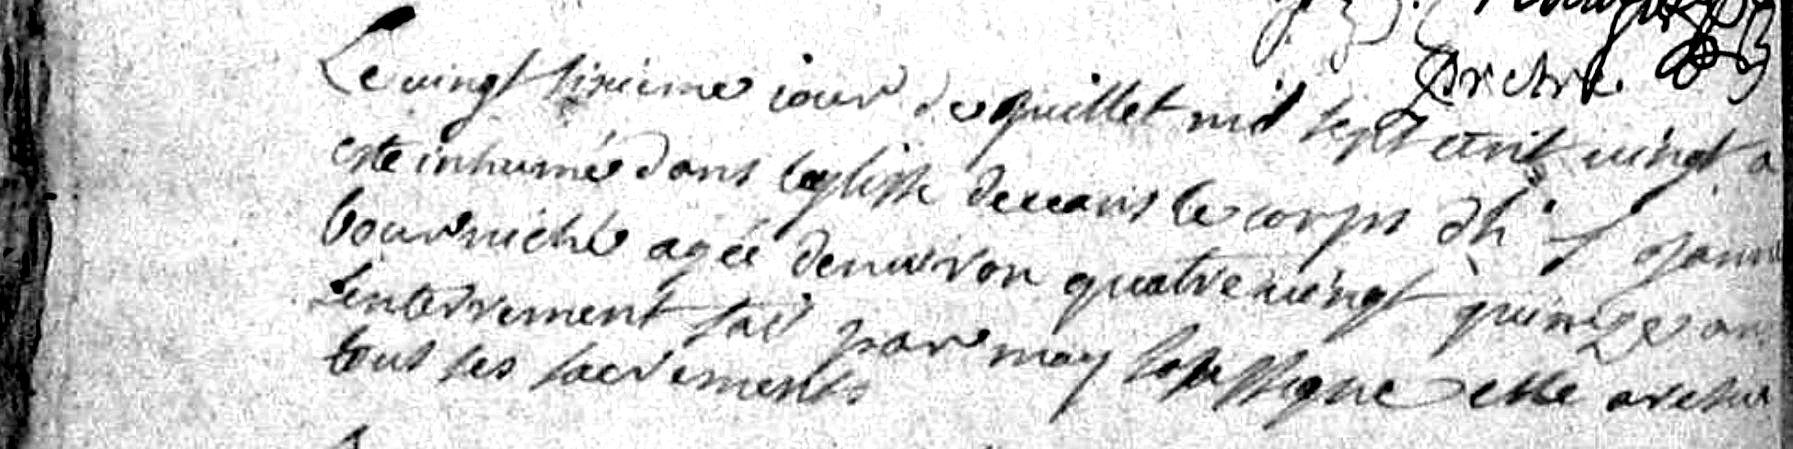 Prctre.
Le vingt sixieme iour de Juillet mil sept cent vingt a
este inhumée dans leglisse de ceans le corps Jeanne
bourniche agée denviron quatre vingt quinze an
Lenterrement fait par moy soussigne elle a receu
tous ses sacrements